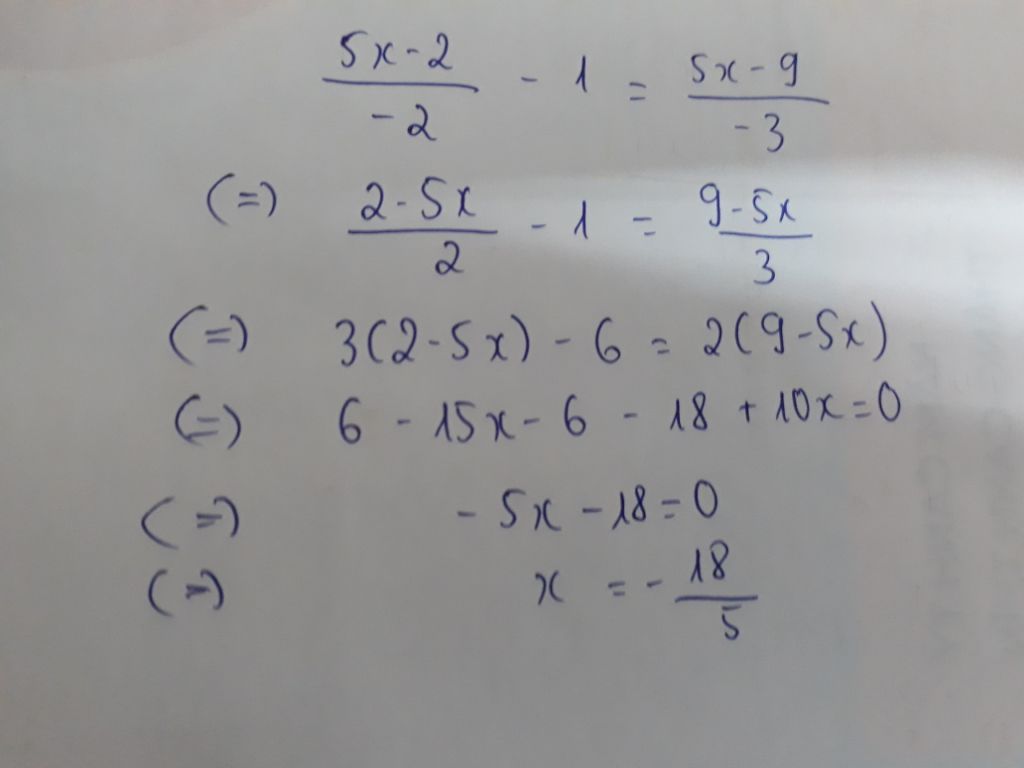 (5x-2)/(-2) - 1 = (5x-9)/(-3)
(=) (2-5x)/2 - 1 = (9-5x)/3
(=) 3(2-5x) - 6 = 2(9-5x)
(=) 6 - 15x - 6 - 18 + 10x = 0
(=) - 5x - 18 = 0
(=) x = - 18/5